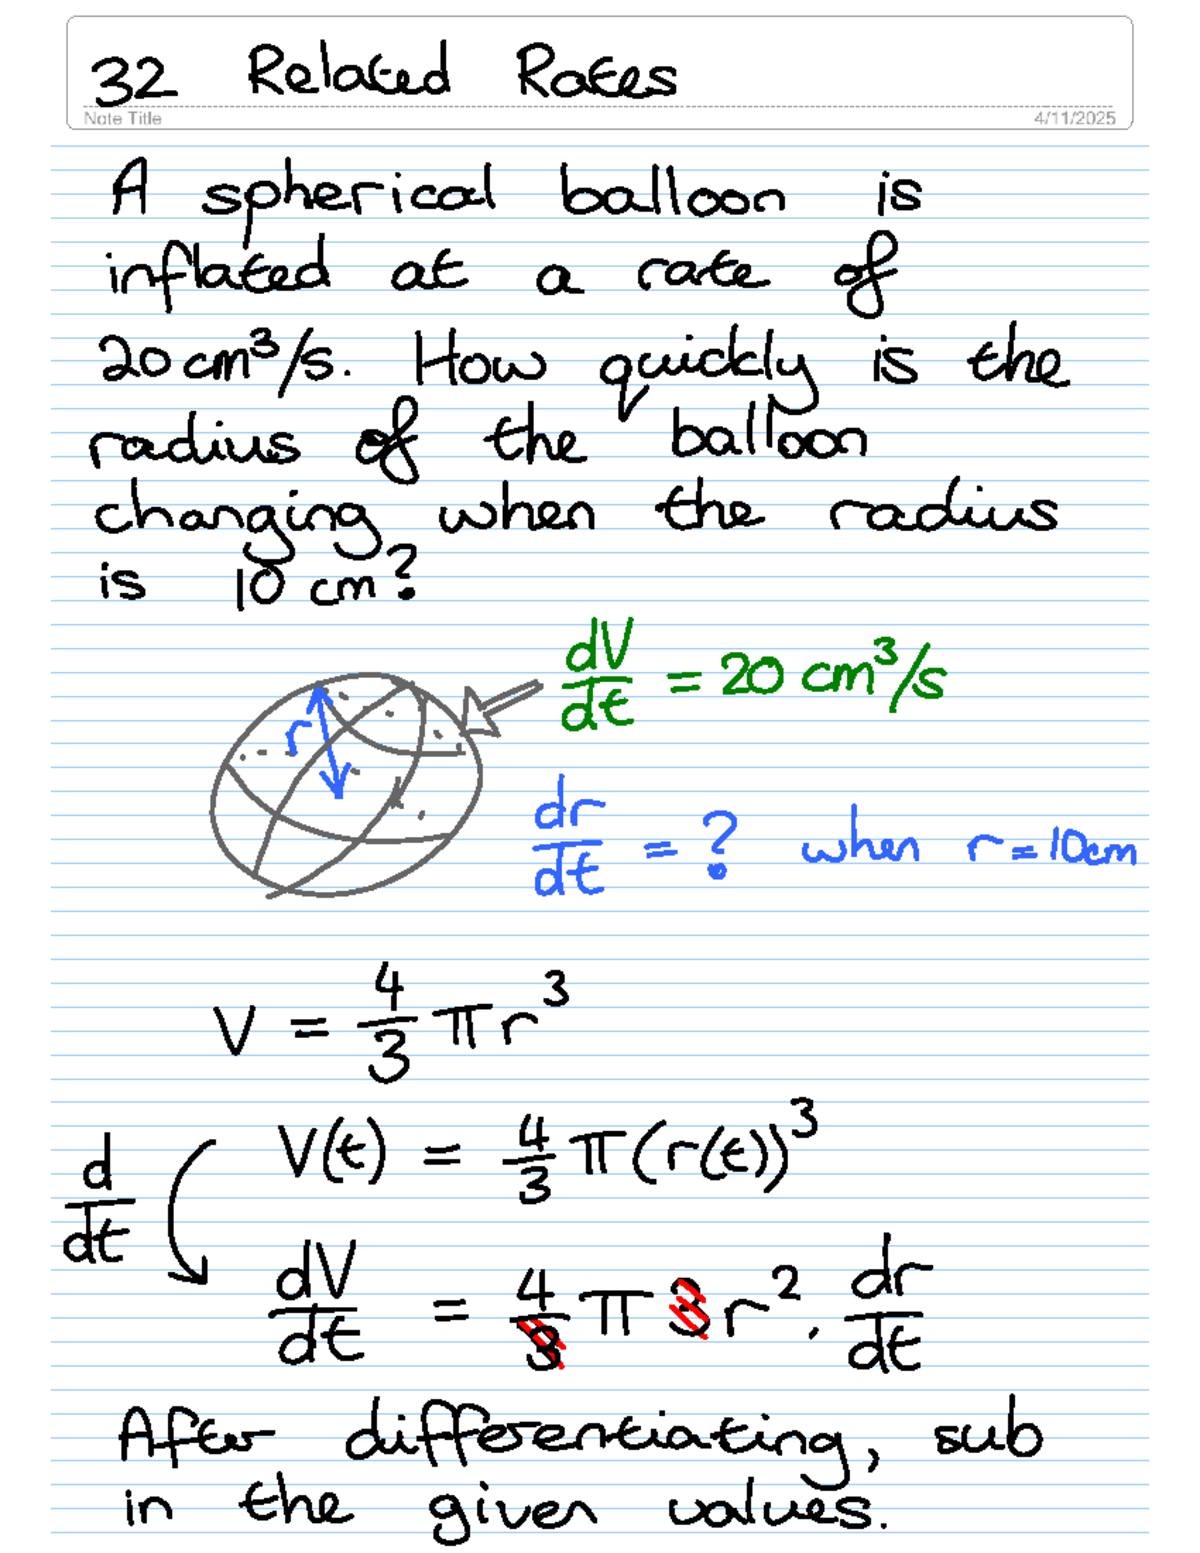 32 Related Rates
Note Title
4/11/2025
A spherical balloon is
inflated at a rate of
20 cm³/s. How quickly is the
radius of the balloon
changing when the radius
is 10 cm?
dV/dt = 20 cm³/s
r
dr/dt = ? when r = 10cm
V = 4/3 πr³
d/dt
V(t) = 4/3 π(r(t))³
dV/dt = 4/3 π 3r² . dr/dt
After differentiating, sub
in the given values.